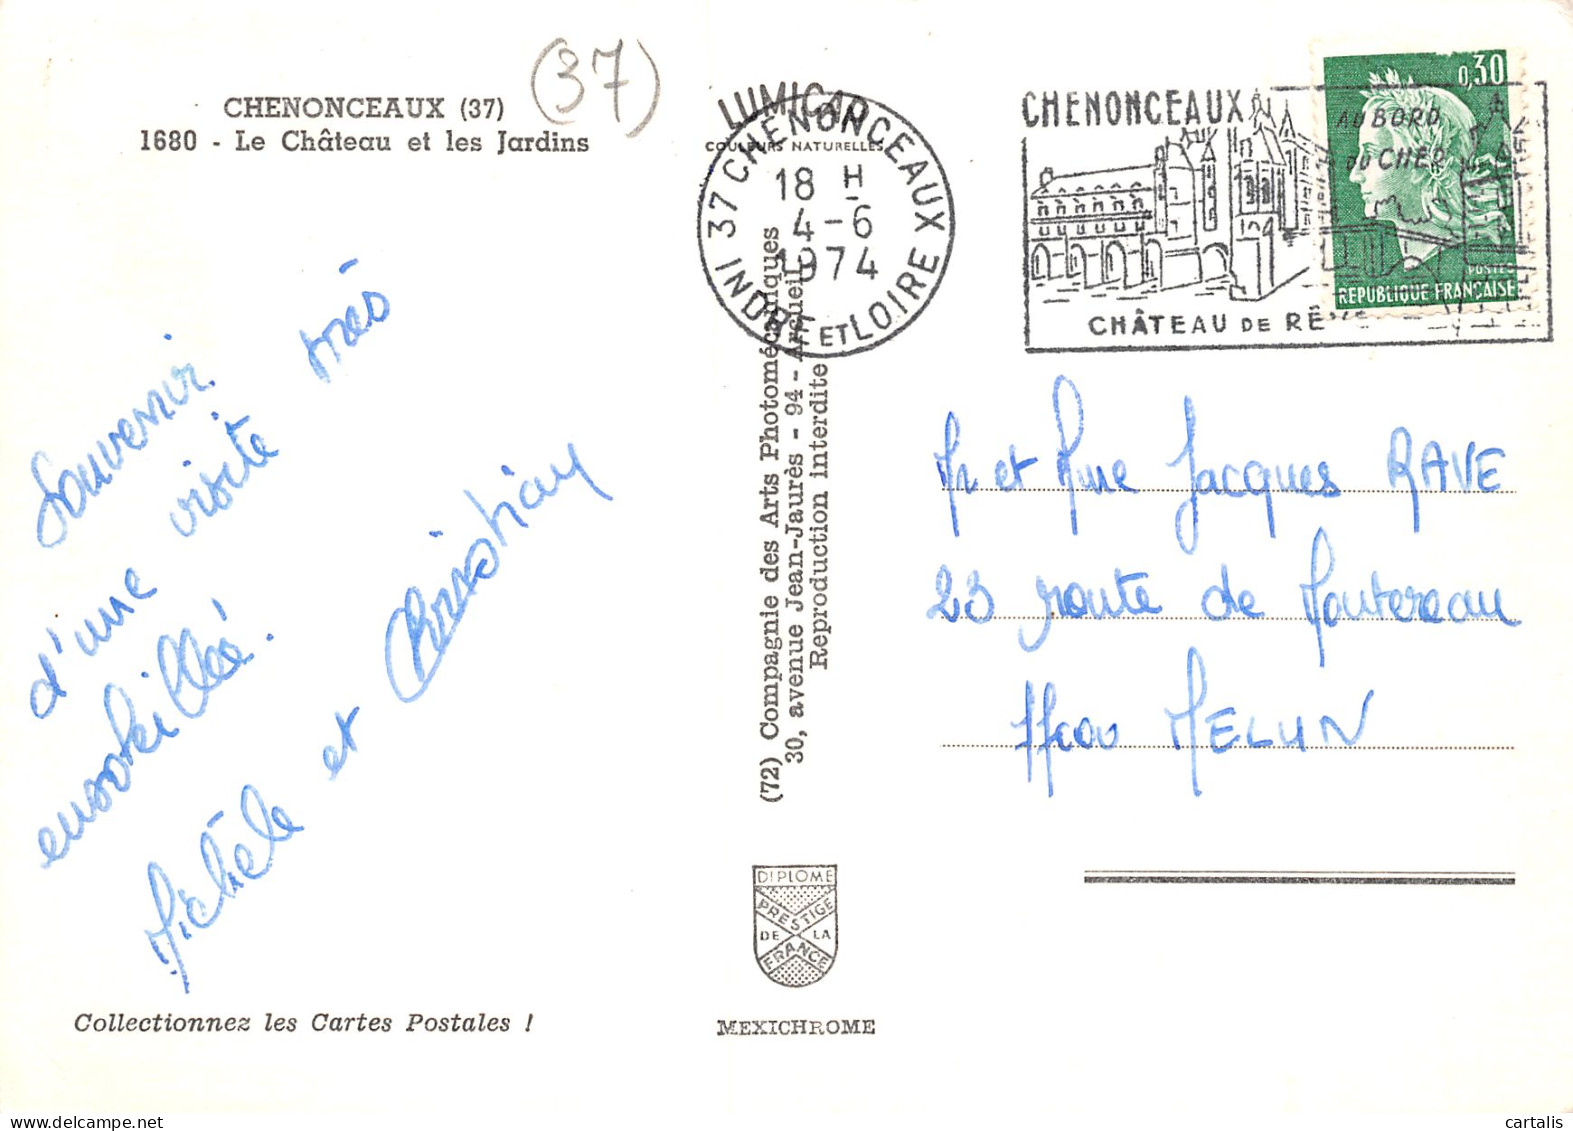 (37)
CHENONCEAUX (37)
1680 - Le Château et les Jardins
Souvenir
d'une visite très
ensoleillée.
Michèle et Christian
Collectionnez les Cartes Postales !
LUMICAP
COULEURS NATURELLES
37 CHENONCEAUX
18 H
4-6
1974
INDRE ET LOIRE
(72) Compagnie des Arts Photomécaniques
30, avenue Jean-Jaurès - 94 - Arcueil
Reproduction interdite
DIPLOME
PRESTIGE
DE LA
FRANCE
MEXICHROME
CHENONCEAUX
AU BORD
DU CHER
CHÂTEAU DE RÊVE
0,30
POSTES
REPUBLIQUE FRANÇAISE
Mr et Mme Jacques RAVE
23 route de Montereau
77000 MELUN
cartalis